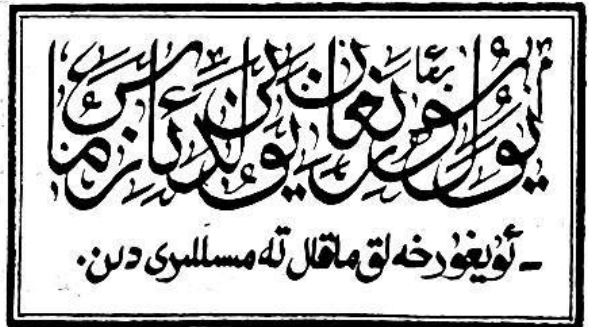 يول سورىغان يولدىن ئازماس
ـ ئۇيغۇر خەلق ماقال تەمسىللىرىدىن.